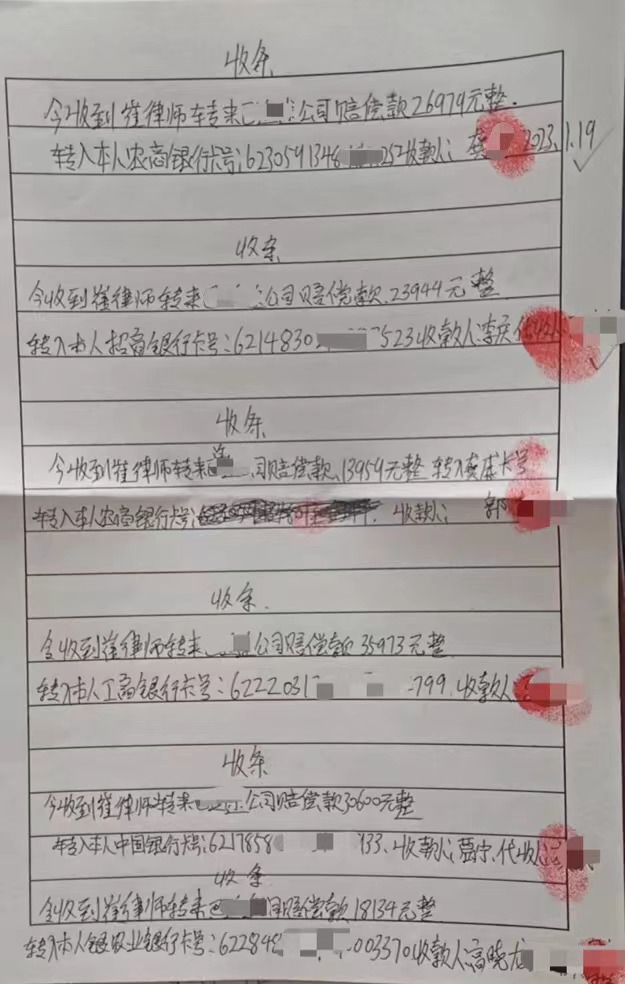 收条
今收到崔律师转来 公司赔偿款26979元整.
转入本人农商银行卡号:6230591348 252收款人: 龚 2023.1.19
收条
今收到崔律师转来 公司赔偿款.23944元整
转入本人招商银行卡号:6214830 7523收款人:李庆 代收人
收条
今收到崔律师转来 公司赔偿款.13959元整 转入 卡号
转入本人农商银行卡号: 收款人: 郭
收条
今收到崔律师转来 公司赔偿款35973元整
转入本人工商银行卡号:6222031 799.收款人:
收条
今收到崔律师转来 公司赔偿款30600元整
转入本人中国银行卡号:6217858 133.收款人:葛宁.代收人:
收条
今收到崔律师转来 公司赔偿款18134元整
转入本人 农业银行卡号:622848 003370收款人:高晓龙